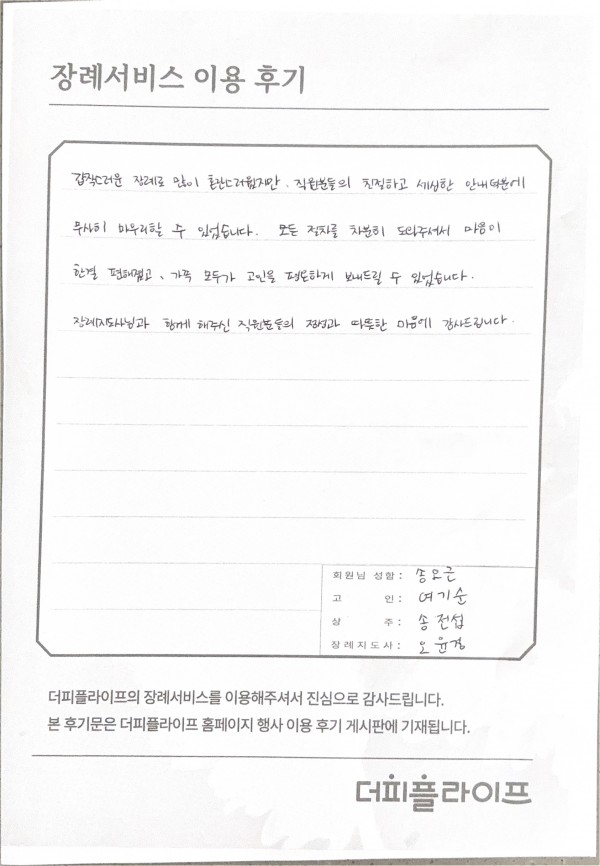 장례서비스 이용 후기
갑작스러운 장례로 많이 혼란스러웠지만, 직원분들의 친절하고 세심한 안내 덕분에
무사히 마무리할 수 있었습니다. 모든 절차를 차분히 도와주셔서 마음이
한결 편해졌고, 가족 모두가 고인을 평온하게 보내드릴 수 있었습니다.
장례지도사님과 함께 해주신 직원분들의 정성과 따뜻한 마음에 감사드립니다.
회원님 성함 : 송오근
고 인 : 여기순
상 주 : 송전섭
장례지도사 : 오윤경
더피플라이프의 장례서비스를 이용해주셔서 진심으로 감사드립니다.
본 후기문은 더피플라이프 홈페이지 행사 이용 후기 게시판에 기재됩니다.
더피플라이프